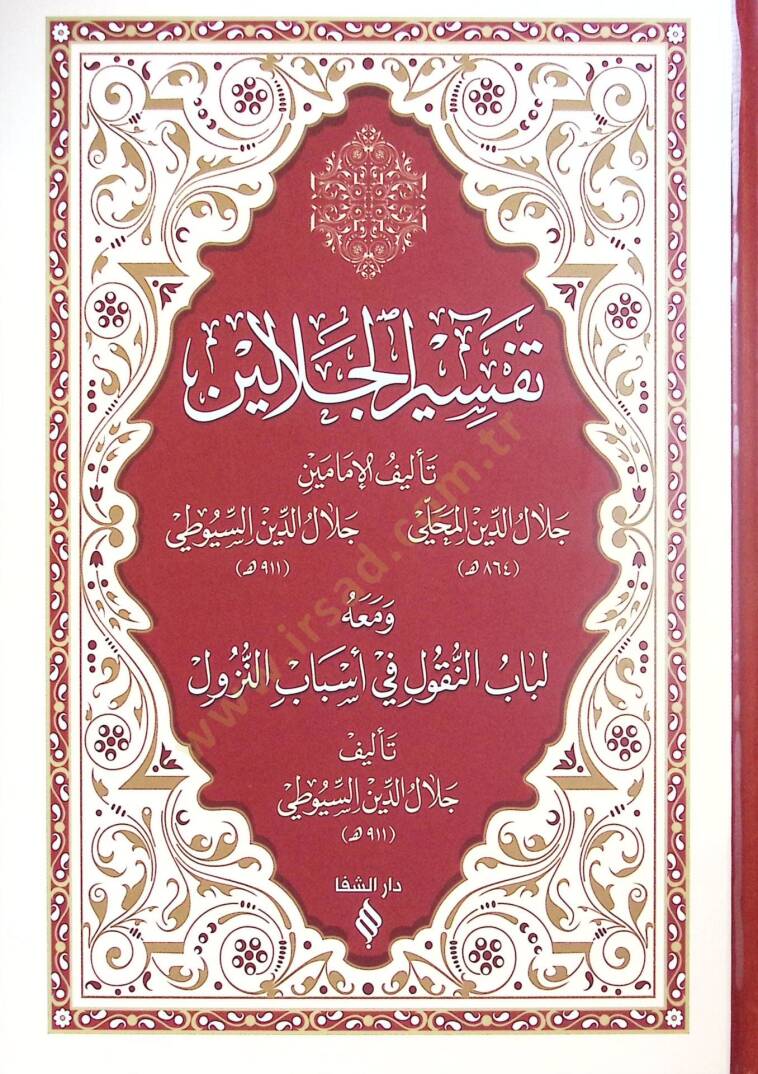 تفسير الجلالين
تَأليفُ الإمَامَينِ
جَلَالُ الدِّين المحَلّي جَلَالُ الدِّين السِّيُوطي
(٨٦٤ هـ) (٩١١ هـ)
وَمَعَهُ
لبَابُ النُّقُولِ في أسْبَابِ النُّزُولِ
تَأليف
جَلَالُ الدِّين السِّيُوطي
(٩١١ هـ)
دار الشفا
www.irsad.com.tr